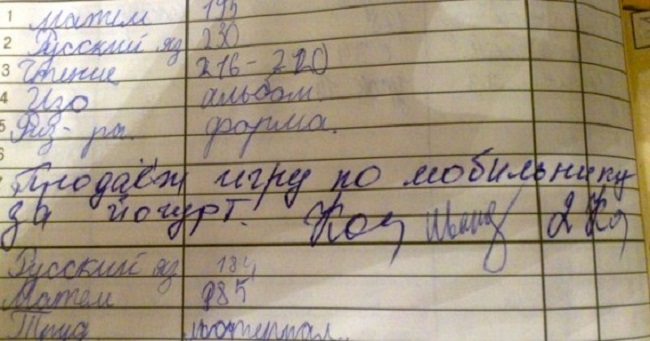 1 Матем 195
2 Русский яз 230
3 Чтение 216-220
4 Изо альбом.
5 Физ-ра. форма.
6
7 Продаёт игру по мобильнику
за йогурт.
Русский яз 184
Матем 985
Труд материал.